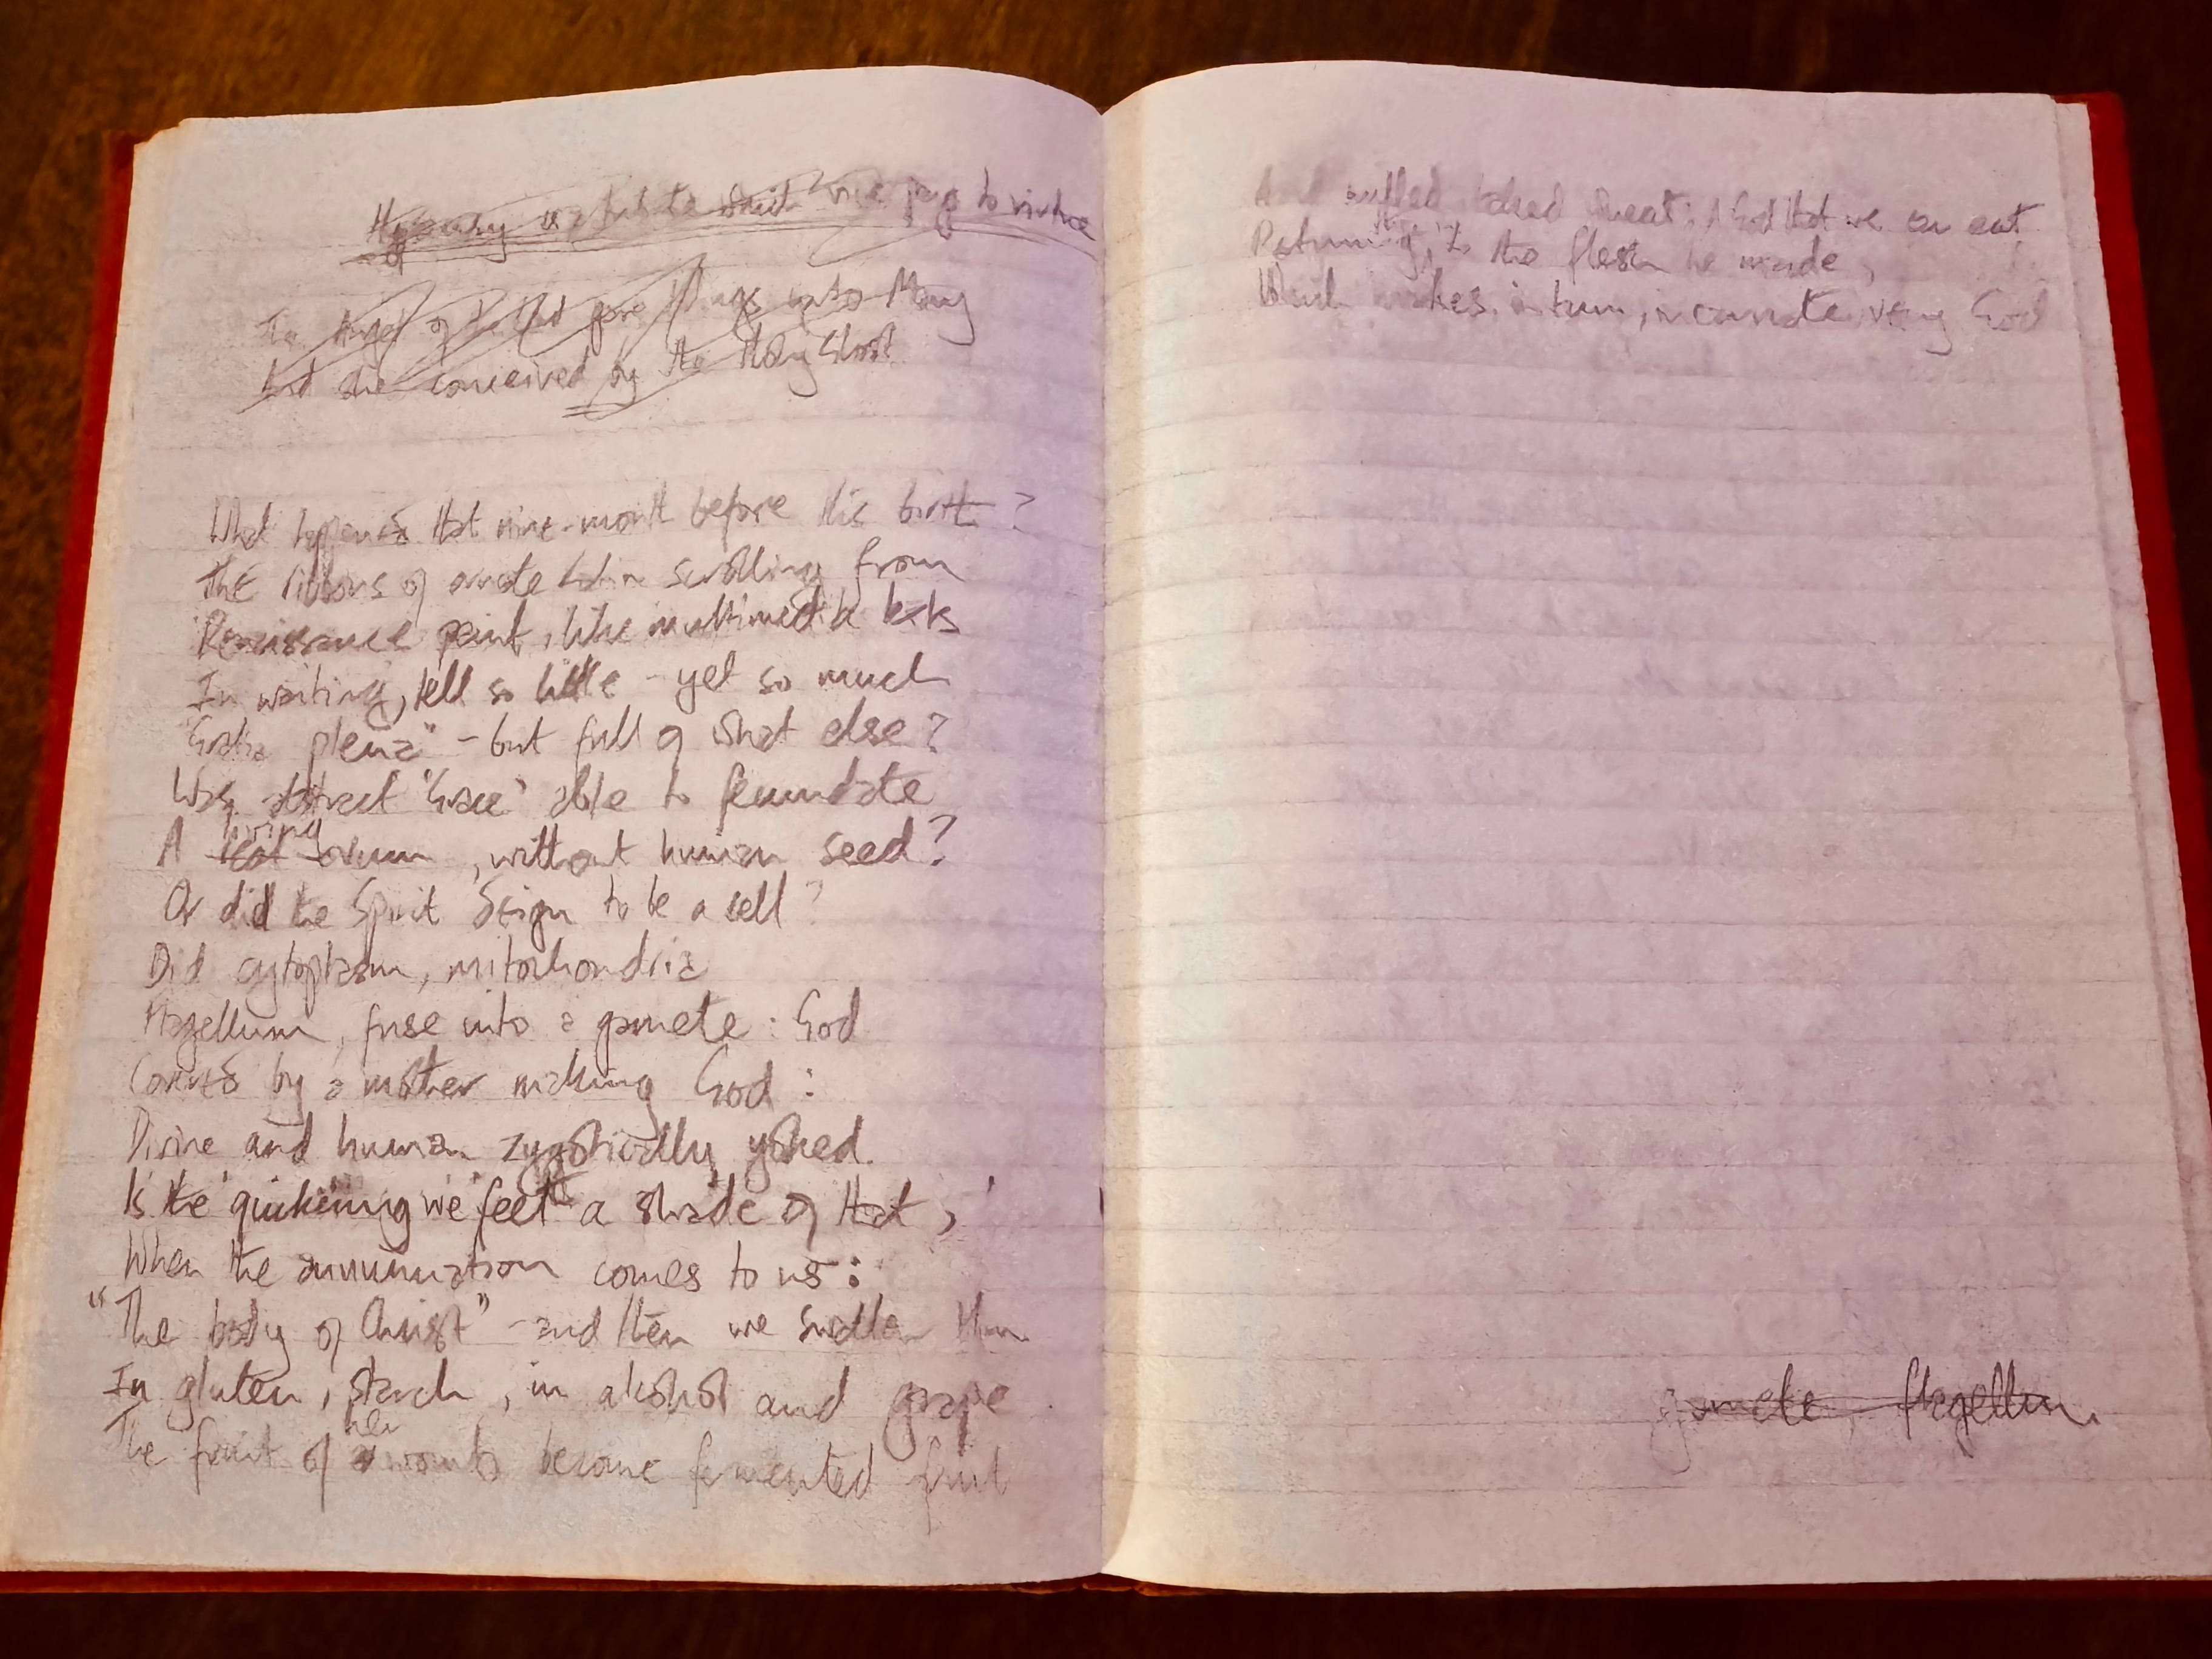 Hypocrisy is a tribute which vice pays to virtue
The Angel of the Lord gave tidings unto Mary
And she conceived by the Holy Ghost
What happened that nine-month before His birth?
The ribbons of ornate Latin scrolling from
Renaissance paint, like multimedia texts
In waiting, tell so little - yet so much
"Gratia plena" - but full of what else?
Was abstract 'Grace' able to fecundate
A real living ovum, without human seed?
Or did the Spirit deign to be a cell?
Did cytoplasm, mitochondria
Flagellum, fuse into a gamete: God
Carried by a mother making God:
Divine and human zygotically yoked.
Is the 'quickening' we feel a shade of that,
When the annunciation comes to us:
"The body of Christ" - and then we swallow Him
In gluten, starch, in alcohol and grape.
The fruit of her womb become fermented fruit
And baked wheat: A God that we can eat
Returning, to the flesh he made,
Which makes, in turn, incarnate, very God
gamete, flagellum